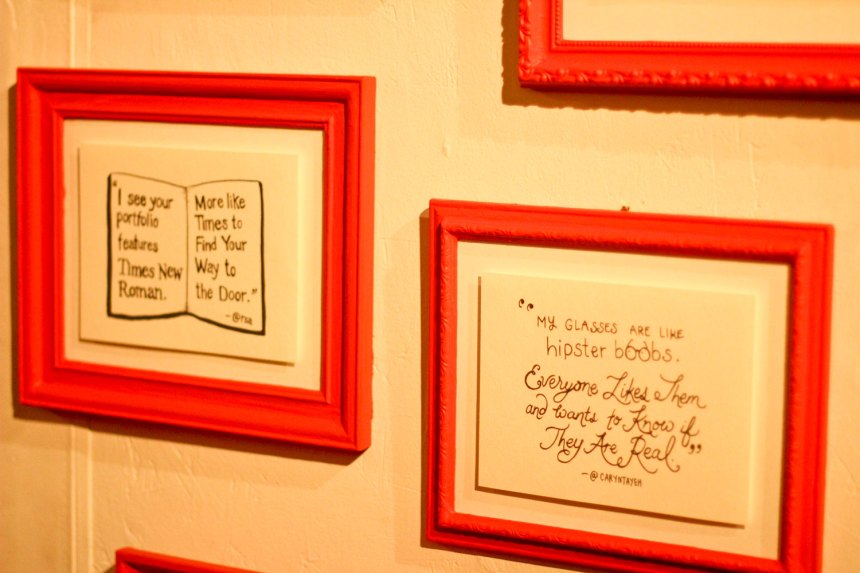 "I see your
portfolio
features
Times New
Roman.
More like
Times to
Find Your
Way to
the Door."
-@rsa
"MY GLASSES ARE LIKE
hipster boobs.
Everyone Likes Them
and wants to Know if
They Are Real."
-@CARYNTAYEH